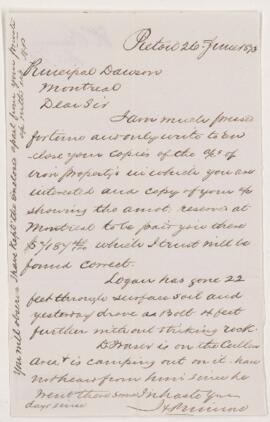 Pictou 26 June 1873
Principal Dawson
Montreal
Dear Sir
I am much pressed
for time and only write to en
close your copies of the a/cs of
iron Property's in which you are
interested and copy of your a/c
showing the amot. reserved at
Montreal to be paid you there
which I trust will be
found correct.
Logan has gone 22
feet through surface soil and
yesterday drove a Bolt 4 feet
further without striking rock.
D Fraser is on the
Area & is camping out on it. have
not heard from him since he
went there some
days since
In haste Yours
You will observe I have kept the enclosed apart from your private